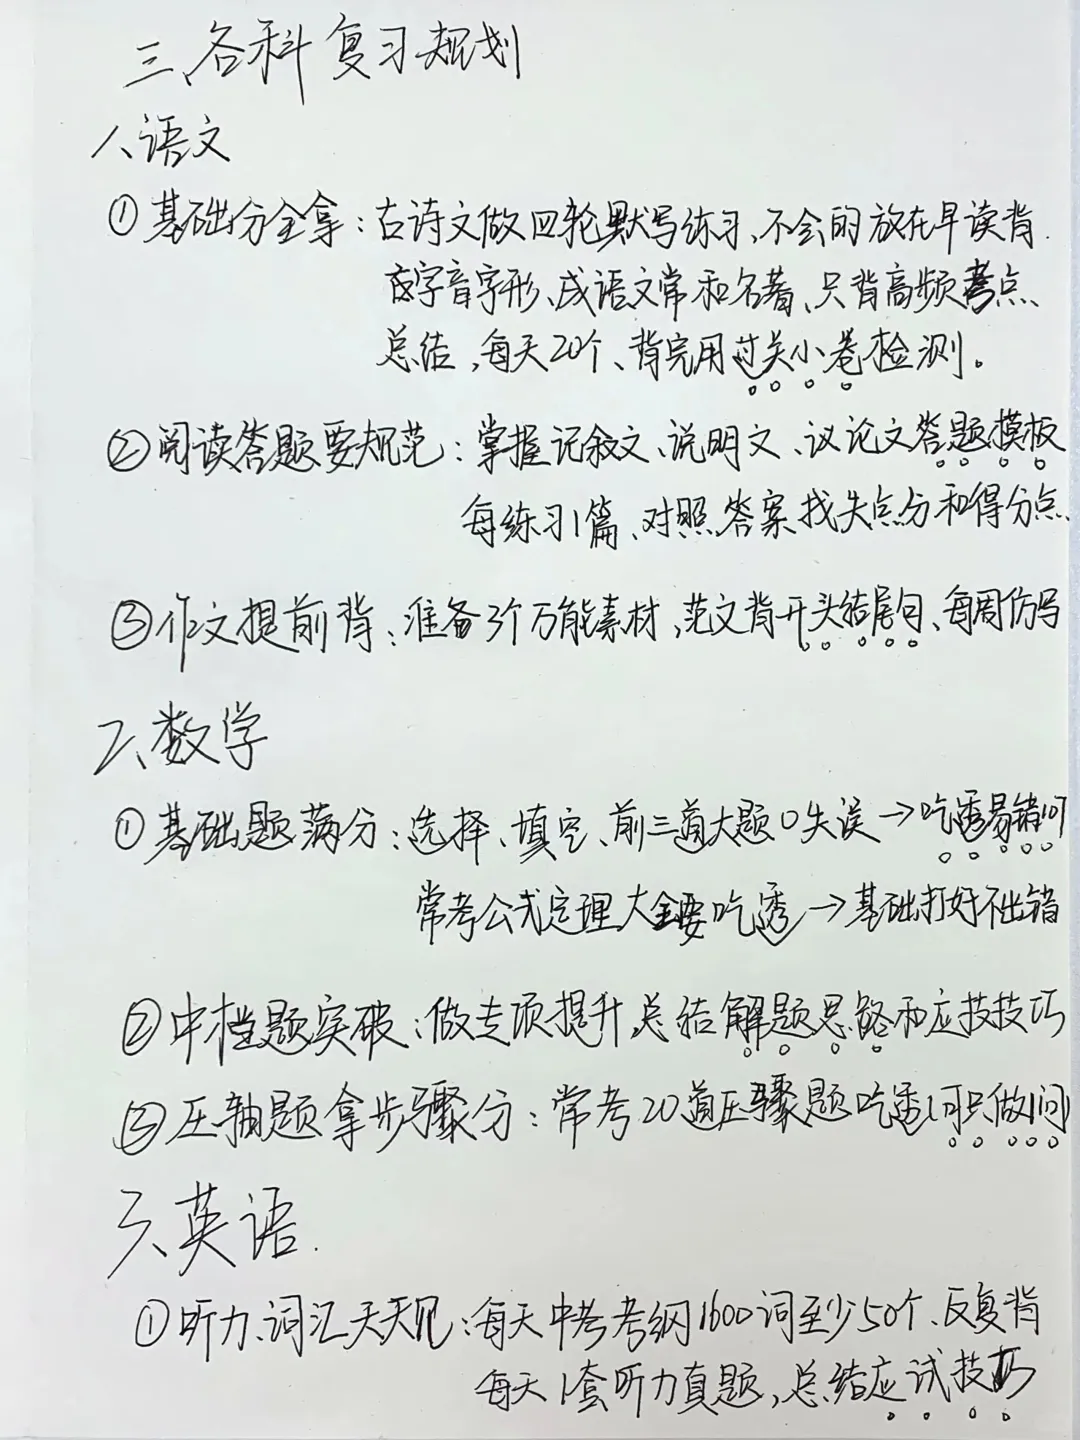 三、各科复习规划
1、语文
①基础分全拿：古诗文做四轮默写练习、不会的放在早读背.
字音字形、成语文常和名著、只背高频考点、
总结，每天20个、背完用过关小卷检测。
②阅读答题要规范：掌握记叙文、说明文、议论文答题模板
每练习1篇、对照答案找失点分和得分点
③作文提前背：准备3个万能素材，范文背开头结尾句、每周仿写
2、数学
①基础题满分：选择、填空、前三道大题0失误→吃透易错
常考公式定理大全要吃透→基础打好不出错
②中档题突破：做专项提升，总结解题思路和应技技巧
③压轴题拿步骤分：常考20道压骤题吃透，可只做1问
3、英语.
①听力、词汇天天见：每天中考考纲1600词至少50个、反复背
每天1套听力真题，总结应试技巧